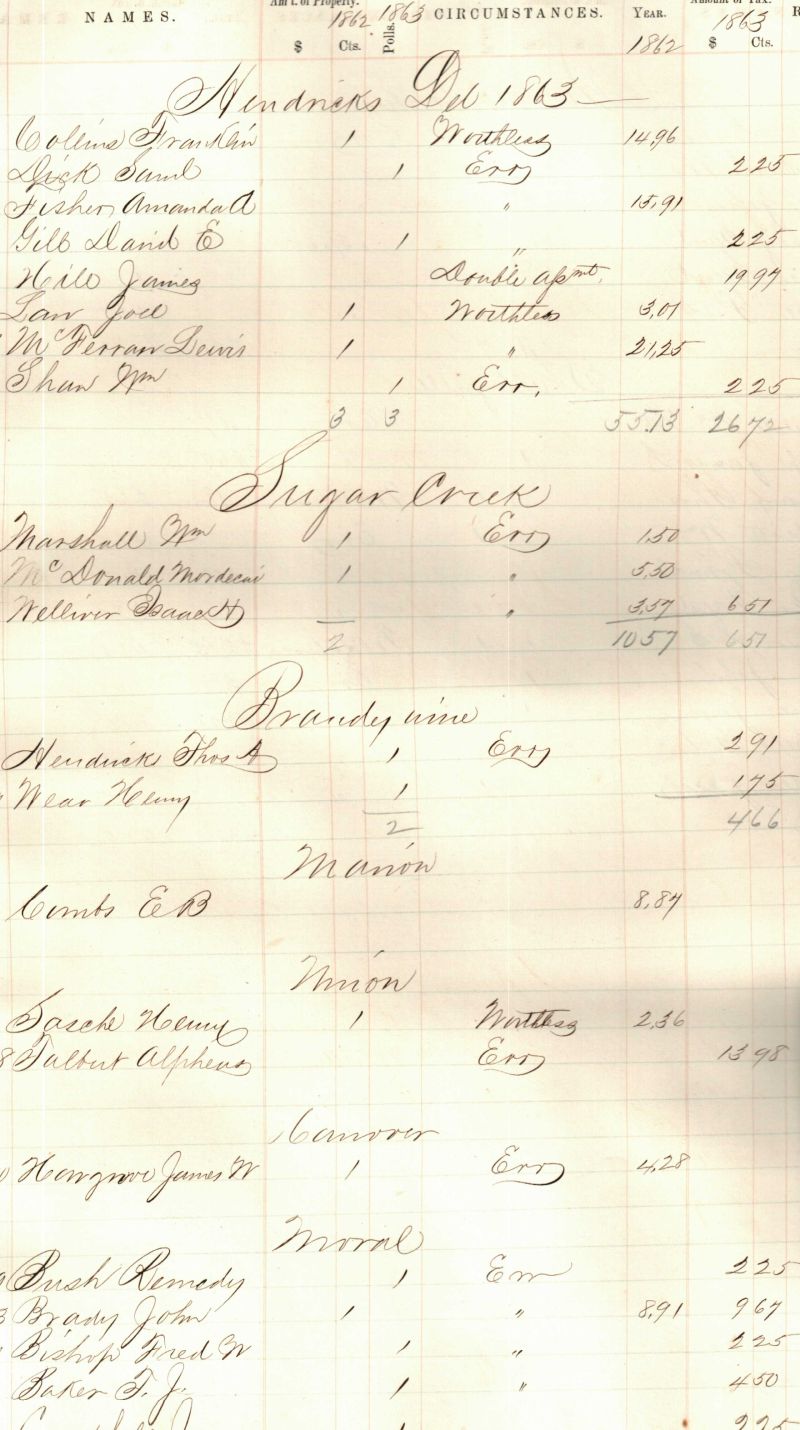 NAMES. Am't. of Property. 1862 1863 CIRCUMSTANCES. YEAR. Amount of Tax. 1863
$ Cts. Polls. 1862 $ Cts.
Hendricks Del 1863
Collins Franklin 1 Worthless 14,96
Dick Saml 1 Err 225
Fisher Amanda A " 15,91
Gill David E 1 " 225
Hill James Double apmt. 1997
Law Joel 1 Worthless 3,01
McFerran Lewis 1 " 21,25
Shaw Wm 1 Err. 225
3 3 55.13 2672
Sugar Creek
Marshall Wm 1 Err 1,50
McDonald Mordecai 1 " 5,50
Welliver Isaac H " 3,57 651
2 1057 651
Brandywine
Hendrick Thos A 1 Err 291
Wear Henry 1 175
2 466
Marion
Combs E B 8,87
Union
Sasche Henry 1 Worthless 2,36
8 Talbert Alpheus Err 1398
Hanover
Hargrove James W 1 Err 4,28
Moral
Bush Remedy 1 Err 225
3 Brady John 1 " 8,91 967
Bishop Fred W 1 " 225
Baker T. J. 1 " 450
225